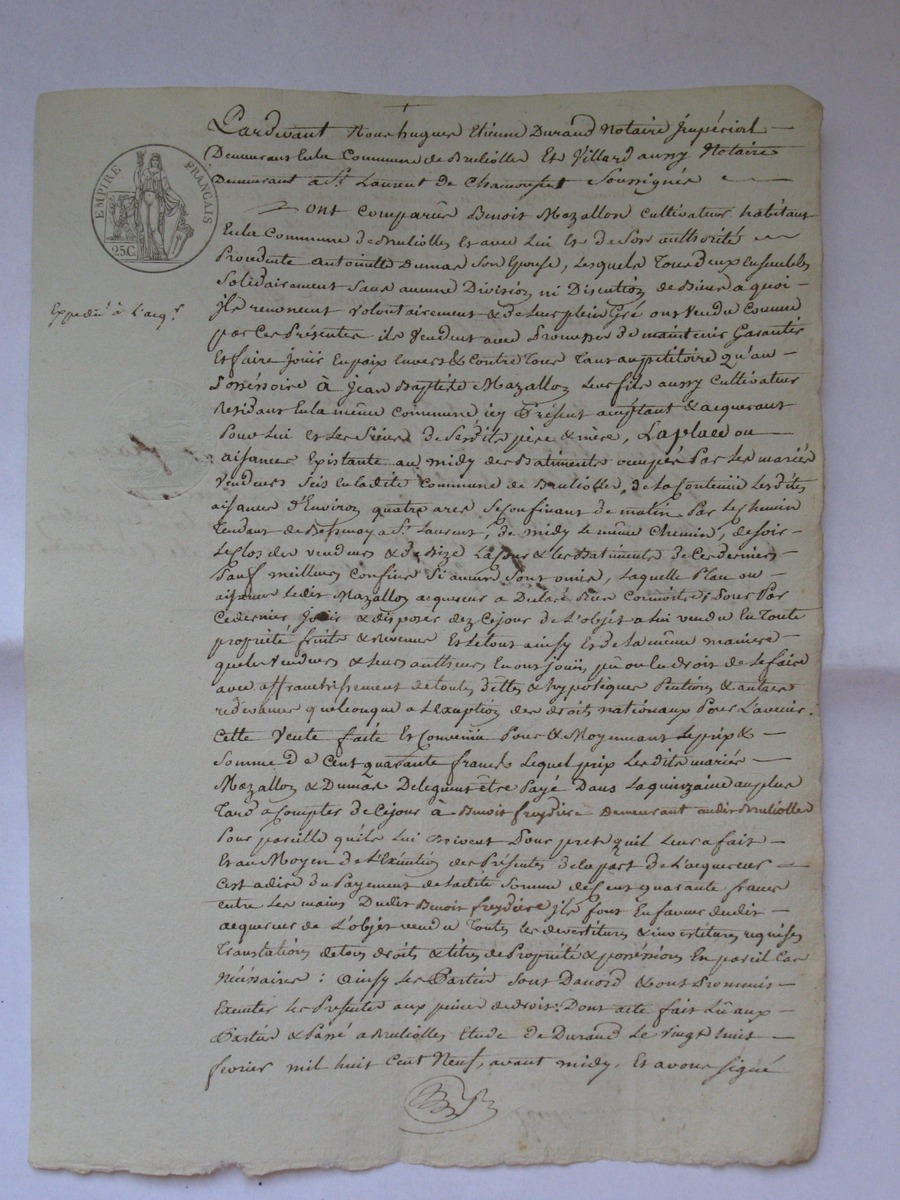 EMPIRE FRANÇAIS
25C.
Expedié à L'acqr
Pardevant Nous hugues Etienne Durand Notaire Impérial
Demeurant En la Commune de Brulliolles Et Villard aussy Notaire
Demeurant à St. Laurent de Chamousset Soussignés
Ont Comparûs Benoit Mazallon Cultivateur habitant
En la Commune de Brulliolles Et avec Lui Et de Son authorité
Procédante Antoinette Dumas Son Epouse, Lesquels Tous deux Ensembles
Solidairement Sans aucune Division ni Discution de Biens à quoi
ils renoncent Volontairement & de Leur plein Gré ont Vendu Comme
par Ces Présentes ils Vendent avec Promesse de maintenir Garantir
Et faire Jouïr En paix Envers & Contre Tous Tant au petitoire qu'au
Possessoire à Jean Baptiste Mazallon Leur fils aussy Cultivateur
Residant En la même Commune icy Présent acceptant & acquerant
Pour Lui Et Les Siens de Sesdits père & mère, La place ou
aisances Existante au midy des Batiments occupés Par Les mariés
Vendeurs Sis En ladite Commune de Brulliolles, de La Contenüe Lesdites
aisances d'Environ quatre ares Se Confinant de matin Par Le Chemin
Tendant de à St. Laurent, de midy Le même Chemin, de Soir
Le Clos des Vendeurs & de Bize La Cour & les Batiments de Ces derniers
Sauf meilleurs Confins Si aucuns Sont omis, Laquelle Place ou
aisances Ledit Mazallon acquereur a Déclaré Bien Connoitre; Pour Par
Ce dernier Jouir & disposer dez Ce jour de L'objet à Lui vendu En Toute
propriété fruits & revenus Et Le tout ainsy Et de La même maniere
que les Vendeurs & Leurs autheurs En ont jouïs, pû ou eu droit de Le faire
avec affranchissement de toutes dettes & hypotéques Pentions & autres
redevances quélconque a L'Exception des droits nationaux Pour L'avenir.
Cette Vente faite Et Convenüe Pour & Moyennant Le prix &
Somme de Cent quarante francs Lequel prix Lesdits mariés
Mazallon & Dumas Deleguent être Payé Dans La quinzaine au plus
Tard à Compter de Ce jour à Benoit freydiere Demeurant audit Brulliolles
Pour pareille qu'ils Lui Doivent Pour pret qu'il Leur a fait
Et au Moyen de L'Exécution des Présentes de la part de L'acquereur
C'est adire du Payement de Ladite Somme de Cent quarante francs
entre Les mains Dudit Benoit freydiere ils font En faveur dudit
acquereur de L'objet vendu Toutes Les devestitures & investitures requises
Translations de tous droits & titres de Propriété & possession En pareil Cas
Nécéssaires: Ainsy Les Parties Sont D'accord & ont Promis
Executer les Presentes aux peines de droit: Dont acte fait Lû aux
Parties & Passé a Brulliolles Etude de Durand Le Vingt huit
fevrier mil huit Cent Neuf, avant midy, Et avons Signé